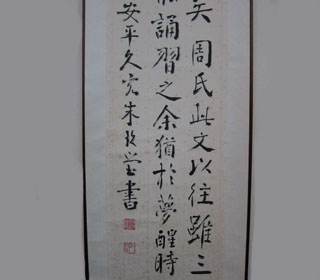 矣周氏此文以往雖三
誦習之余猶於夢醒時
安平久客朱玖瑩書